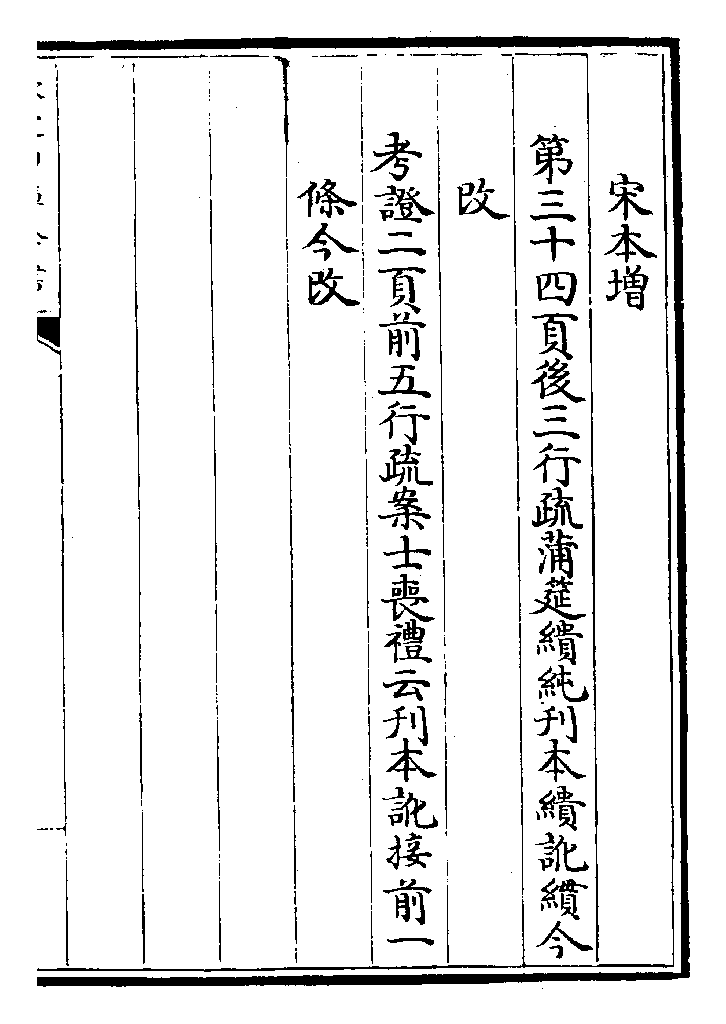 宋本增
第三十四頁後三行疏蒲筵繢純刊本繢訛纘今
改
考證二頁前五行疏案士喪禮云刊本訛接前一
條今改